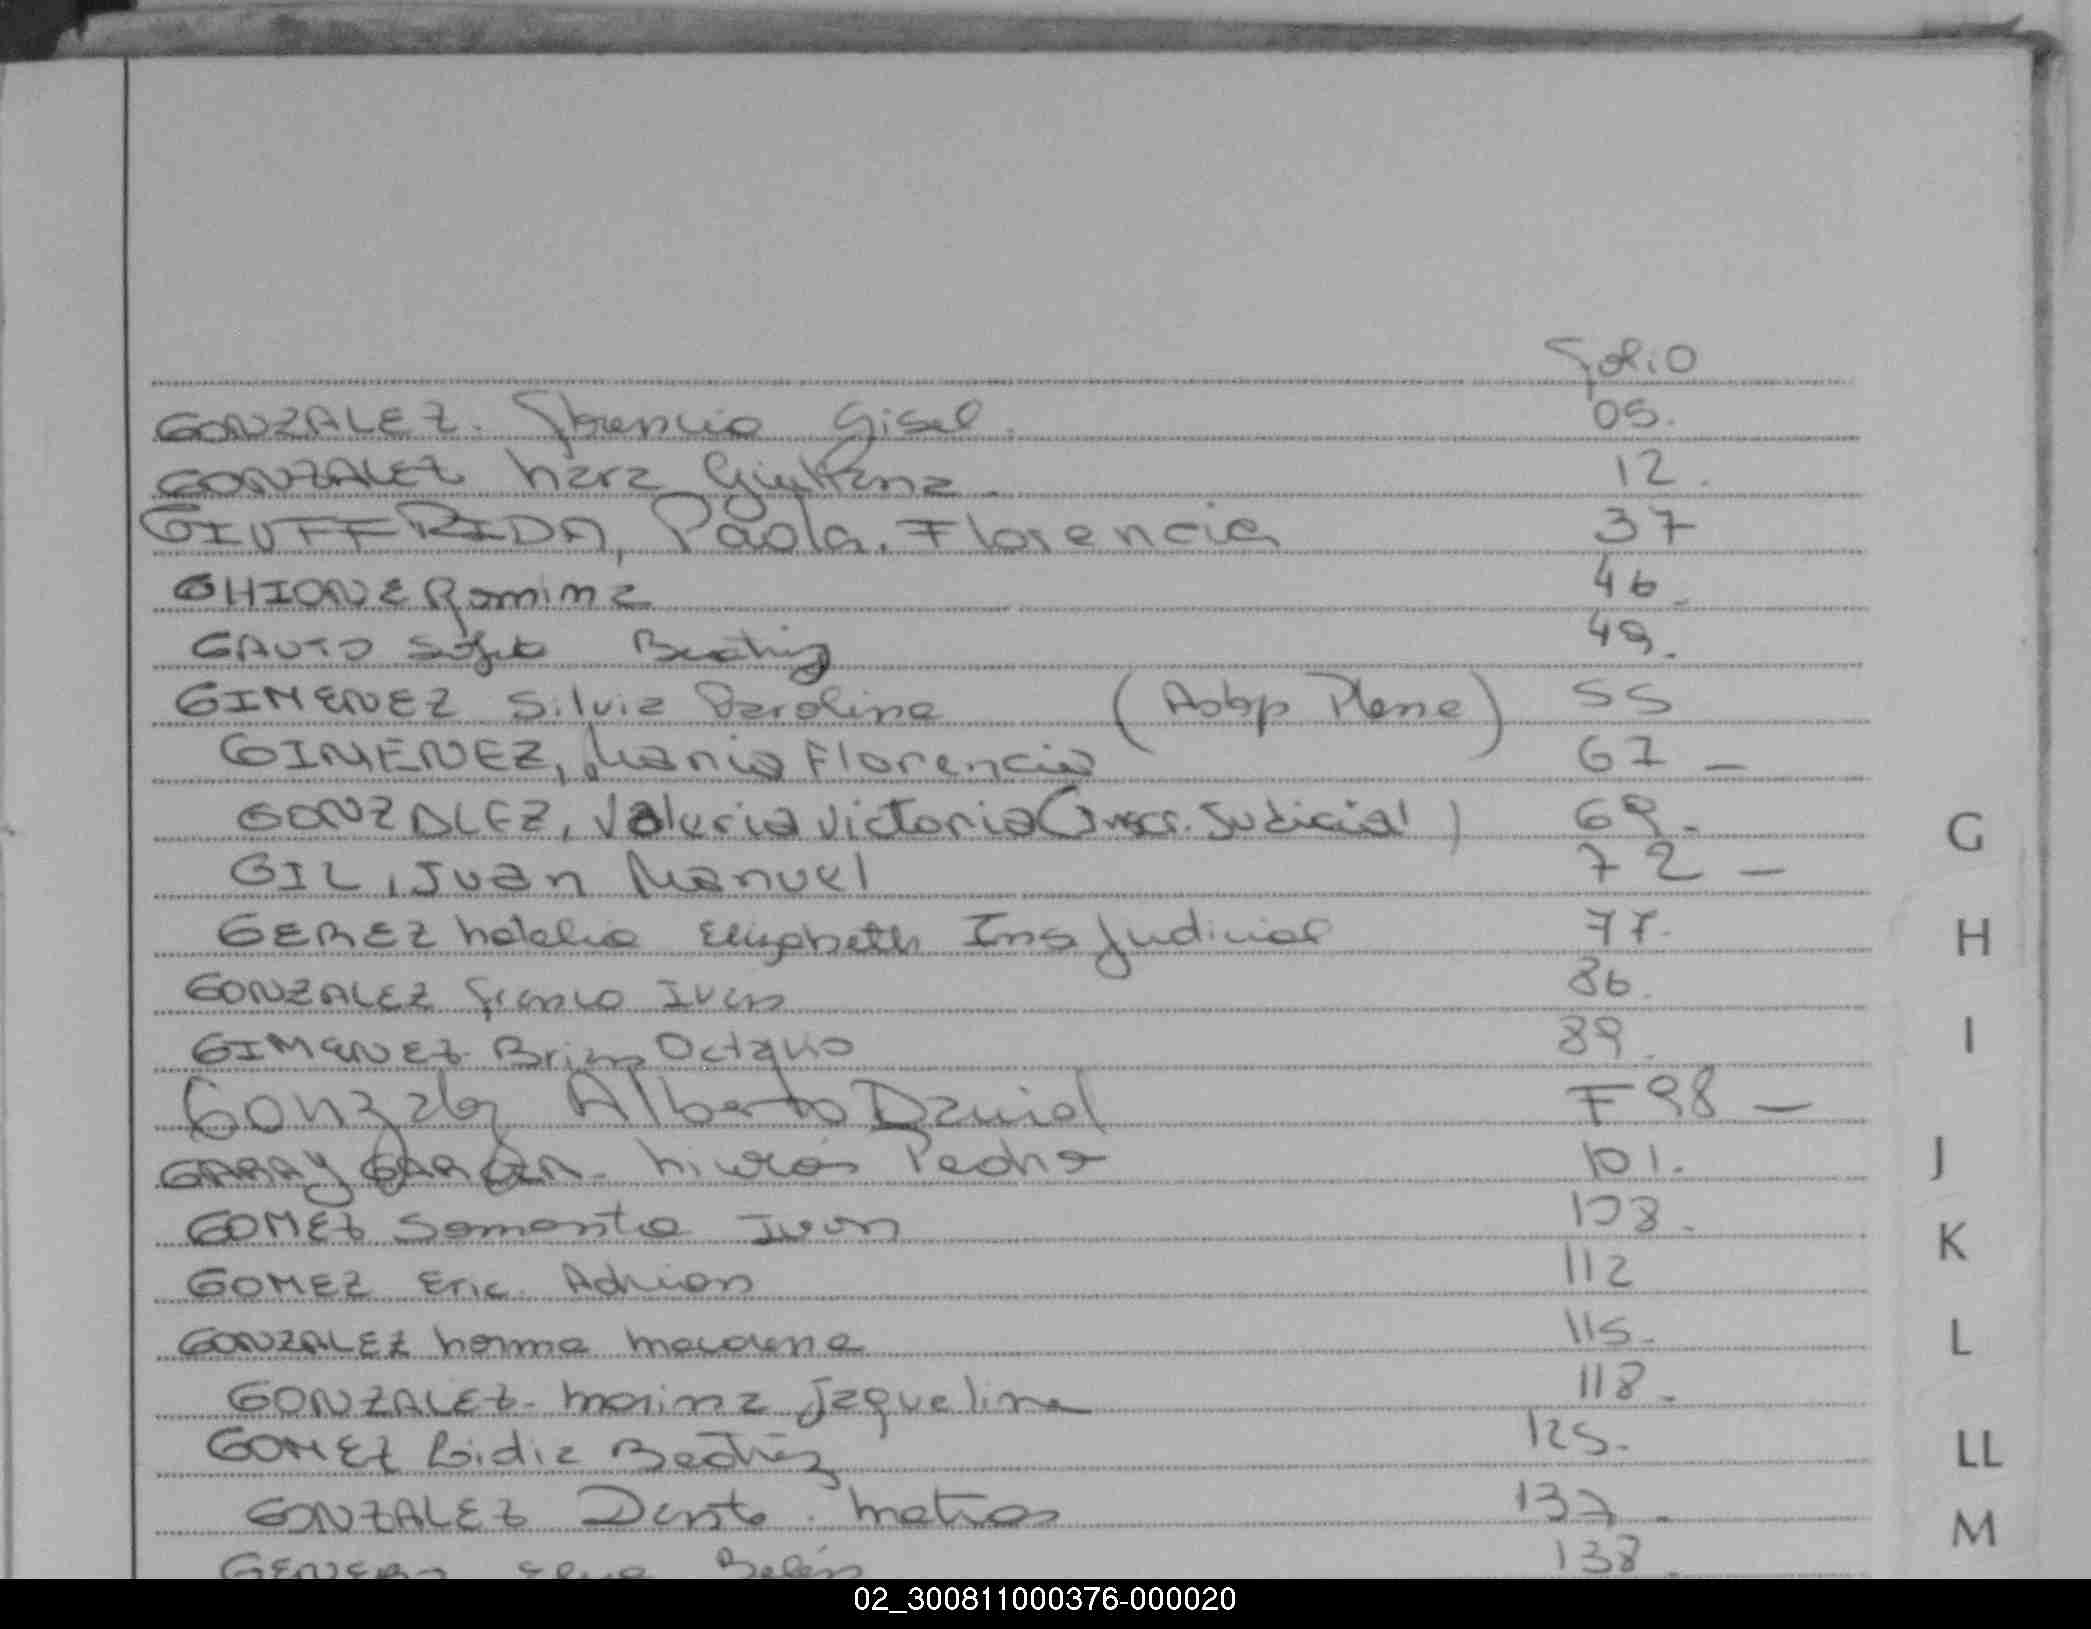 Folio
GONZALEZ. Florencia Gisel. 05.
GONZALEZ Nara Giuliana. 12.
GIUFFRIDA, Paola. Florencia 37
GHIONE Romina 46.
GAUTO Beatriz 49.
GIMENEZ Silvia Carolina (Adop Plena) 55
GIMENEZ, Maria Florencia 67 -
GONZALEZ, Valeria Victoria (Insc. Judicial) 69.
GIL, Juan Manuel 72 -
GEREZ Natalia Elizabeth Ins Judicial 77.
GONZALEZ Franco Ivan 86.
GIMENEZ. Brian Octavio 89.
Gonzalez Alberto Daniel F 98 -
GARAY Pedro 101.
GOMEZ Samanta Ivon 108.
GOMEZ Eric Adrian 112
GONZALEZ Norma Macarena 115.
GONZALEZ. Marina Jaqueline 118.
GOMEZ Lidia Beatriz 125.
GONZALEZ Dante. Matias 137.
Belén 138.
G
H
I
J
K
L
LL
M
02_300811000376-000020